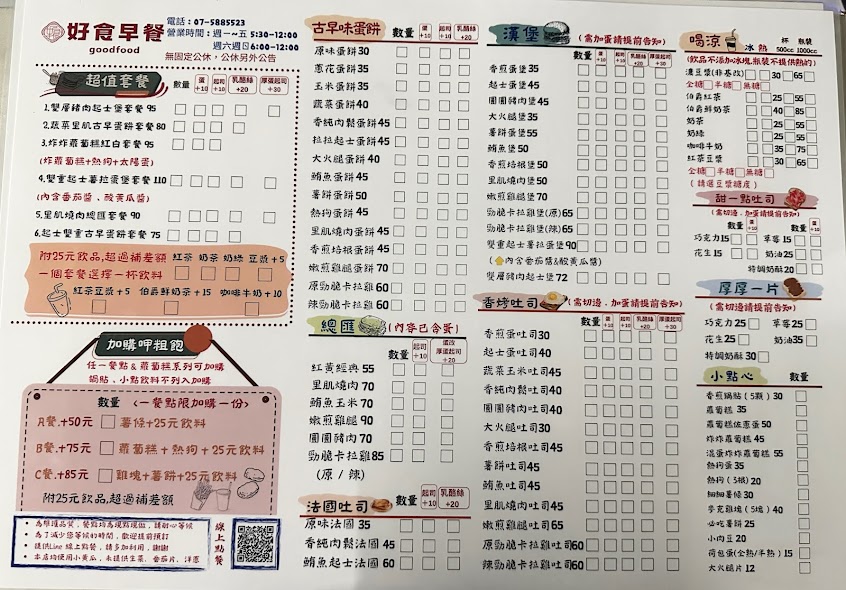 好食早餐
goodfood
電話：07-5885523
營業時間：週一~五 5:30-12:00
週六週日6:00-12:00
無固定公休，公休另外公告
超值套餐 數量 蛋+10 起司+10 乳酪絲+20 厚蛋起司+30
1.雙層豬肉起士堡套餐 95
2.蔬菜里肌古早蛋餅套餐 80
3.炸炸蘿蔔糕紅白套餐 95
(炸蘿蔔糕+熱狗+太陽蛋)
4.雙重起士薯拉蛋堡套餐 110
(內含番茄醬、酸黃瓜醬)
5.里肌燒肉總匯套餐 90
6.起士雙重古早蛋餅套餐 75
附25元飲品,超過補差額 紅茶 奶茶 奶綠 豆漿+5
一個套餐選擇一杯飲料
紅茶豆漿+5 伯爵鮮奶茶+15 咖啡牛奶+10
加購呷粗飽
任一餐點&蘿蔔糕系列可加購
鍋貼，小點飲料不列入加購
數量 <一餐點限加購一份>
A餐.+50元 薯條+25元飲料
B餐.+75元 蘿蔔糕+熱狗+25元飲料
C餐.+85元 雞塊+薯餅+25元飲料
附25元飲品,超過補差額
為維護品質，餐點均為現點現做，請耐心等候
為了減少您等候的時間，歡迎提前預訂
提供Line 線上點餐，請多加利用，謝謝
本店均使用小黃瓜，未提供生菜、番茄片、洋蔥
線上點餐
古早味蛋餅 數量 蛋+10 起司+10 乳酪絲+20
原味蛋餅30
蔥花蛋餅35
玉米蛋餅35
蔬菜蛋餅40
香純肉鬆蛋餅45
拉拉起士蛋餅45
大火腿蛋餅 40
鮪魚蛋餅 45
薯餅蛋餅 50
熱狗蛋餅 45
里肌燒肉蛋餅 45
香煎培根蛋餅 45
嫩煎雞腿蛋餅 70
原勁脆卡拉雞 60
辣勁脆卡拉雞 60
總匯 (內容已含蛋)
數量 起司+10 蛋改厚蛋起司+20
紅黃經典 55
里肌燒肉 70
鮪魚玉米 70
嫩煎雞腿 90
圓圓豬肉 70
勁脆卡拉雞85
(原 / 辣)
法國吐司 數量 起司+10 乳酪絲+20
原味法國 35
香純肉鬆法國 45
鮪魚起士法國 60
漢堡 (需加蛋請提前告知)
數量 蛋+10 起司+10 乳酪絲+20 厚蛋起司+30
香煎蛋堡 35
起士蛋堡 45
圓圓豬肉堡 45
大火腿堡 35
薯餅蛋堡 55
鮪魚堡 50
香煎培根堡 50
里肌燒肉堡 50
勁脆卡拉雞堡(原)65
勁脆卡拉雞堡(辣)65
雙重起士薯拉蛋堡90
(內含番茄醬&酸黃瓜醬)
雙層豬肉起士堡 72
香烤吐司 (需切邊、加蛋請提前告知)
數量 蛋+10 起司+10 乳酪絲+20 厚蛋起司+30
香煎蛋吐司30
起士蛋吐司40
蔬菜玉米吐司45
香純肉鬆吐司40
圓圓豬肉吐司40
大火腿吐司 30
香煎培根吐司45
薯餅吐司45
鮪魚吐司45
里肌燒肉吐司45
嫩煎雞腿吐司 65
原勁脆卡拉雞吐司60
辣勁脆卡拉雞吐司60
喝涼 冰 熱 杯500cc 瓶裝1000cc
(飲品不添加冰塊,瓶裝不提供熱的)
濃豆漿(非基改) 30 65
全糖 半糖 無糖
伯爵紅茶 25 55
伯爵鮮奶茶 40 85
奶茶 25 55
奶綠 25 55
咖啡牛奶 35 75
紅茶豆漿 30 65
全糖 半糖 無糖
(請選豆漿糖度)
甜一點吐司
(需切邊、加蛋請提前告知)
巧克力15 草莓15
花生15 奶油25
特調奶酥20
厚厚一片
(需切邊請提前告知)
巧克力 25 草莓25
花生25 奶油35
特調奶酥 30
小點心 數量
香煎鍋貼(5顆) 30
蘿蔔糕 35
蘿蔔糕佐蔥蛋 50
炸炸蘿蔔糕 45
混蛋炸炸蘿蔔糕 55
熱狗蛋 35
熱狗(3根) 20
細細薯條 30
麥克雞塊(5塊) 40
必吃薯餅 25
小肉豆 20
荷包蛋(全熟/半熟) 15
大火腿片 12